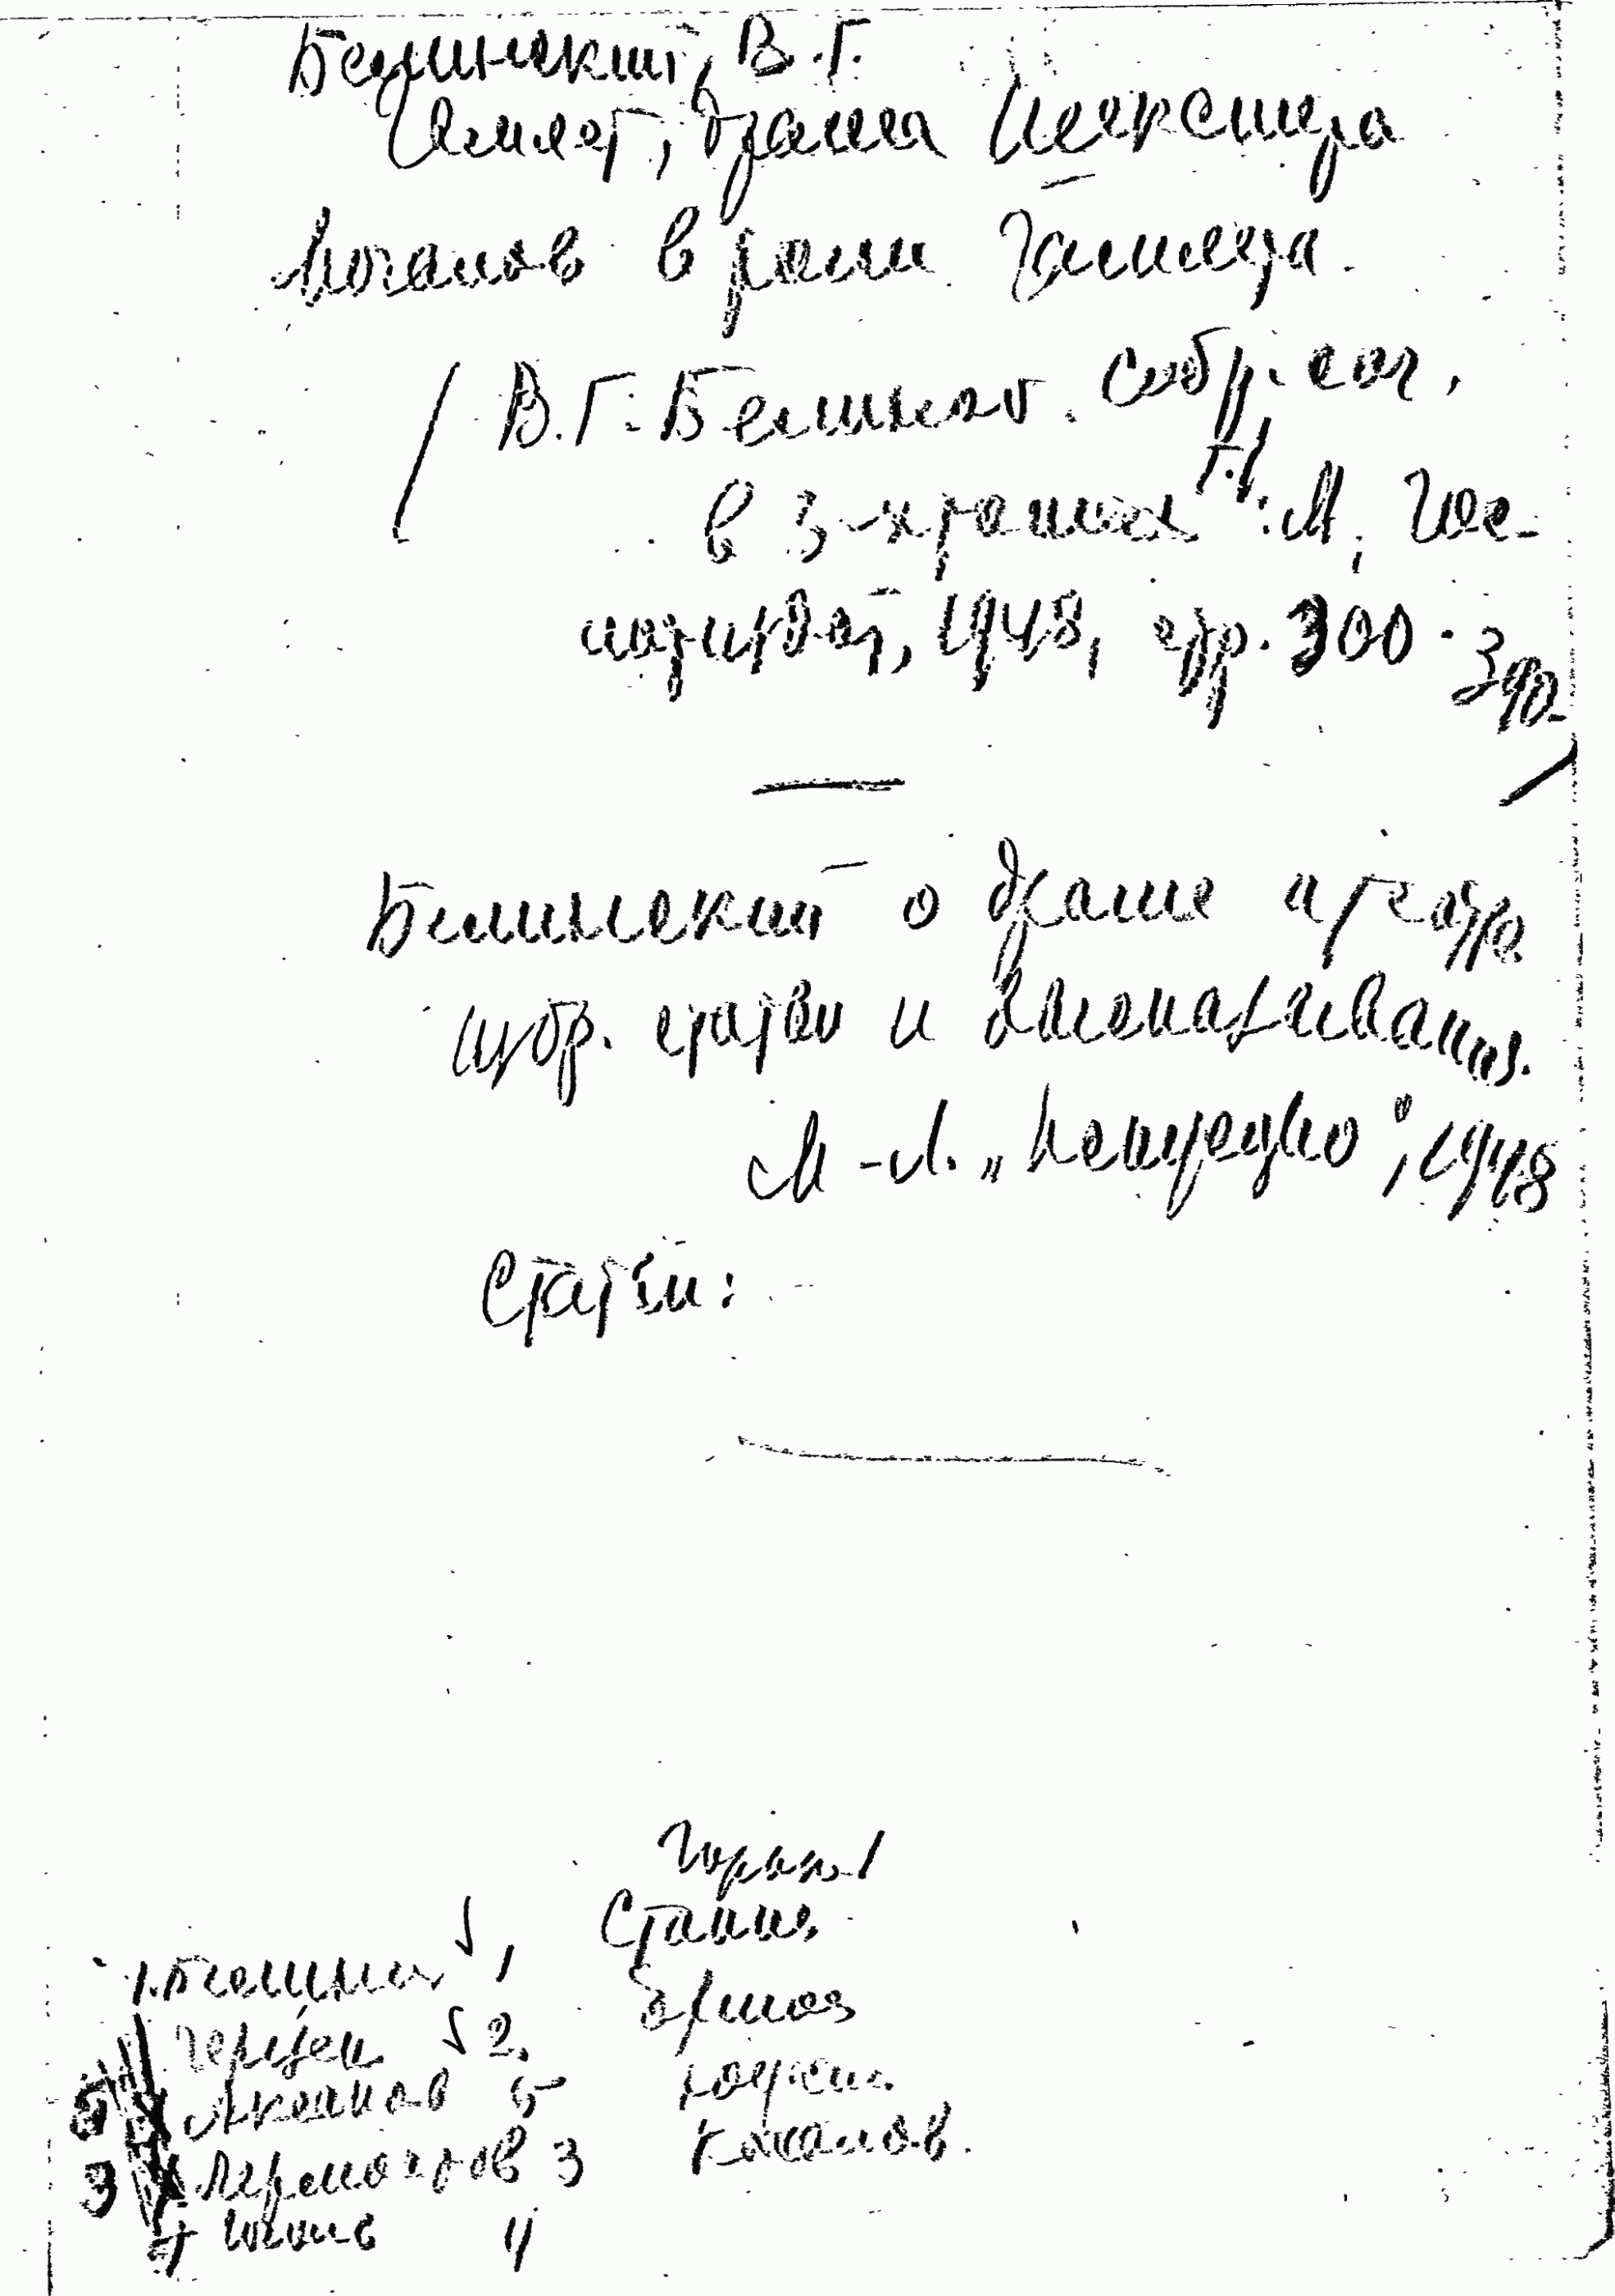 Белинский, В.Г.
Гамлет, драма Шекспира
Мочалов в роли Гамлета.
/ В.Г. Белинск. собр. соч.,
в 3-х томах т.I. М, Гос-
литиздат, 1948, стр. 300-390
Белинский о драме и театре
избр. статьи и высказывания.
М-Л. „Искусство", 1948
Статьи:
Горьк. 1
Сталин
1. Белинск 1
Герцен 2.
5 Аксаков 5
3 Лермонтов 3
4 Гоголь 4